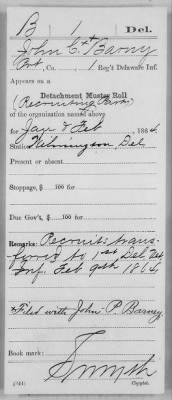 B 1 Del.
John C.* Barney
Pvt, Co. , 1 Reg't Delaware Inf.
Appears on a
Detachment Muster Roll
(Recruiting Party)
of the organization named above
for Jan & Feb , 1864.
Station Wilmington Del
Present or absent
Stoppage, $ 100 for
Due Gov't, $ 100 for
Remarks: Recruits trans-
fered to 1st Del. Vet.
Inf. Feb 9th 1864
*Filed with John P. Barney
Book mark:
Smyth
(244) Copyist.